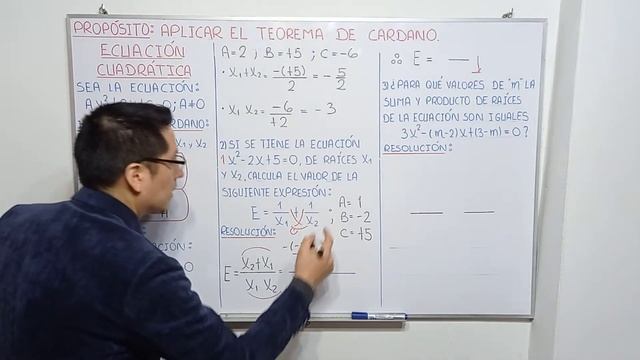 PROPÓSITO: APLICAR EL TEOREMA DE CARDANO.
ECUACIÓN
CUADRÁTICA
SEA LA ECUACIÓN:
; A≠0
X₁ Y X₂
A=2 ; B=+5 ; C=-6
• X₁+X₂ = -(+5)/2 = -5/2
• X₁ X₂ = -6/+2 = -3
2) SI SE TIENE LA ECUACIÓN
1X²-2X+5=0, DE RAÍCES X₁
Y X₂, CALCULA EL VALOR DE LA
SIGUIENTE EXPRESIÓN:
E = 1/X₁ + 1/X₂ ; A=1
B=-2
C=+5
RESOLUCIÓN:
E = X₂+X₁/X₁ X₂ = -(-
∴ E =
3) ¿PARA QUÉ VALORES DE "m" LA
SUMA Y PRODUCTO DE RAÍCES
DE LA ECUACIÓN SON IGUALES
3X²-(m-2)X+(3-m)=0?
RESOLUCIÓN: